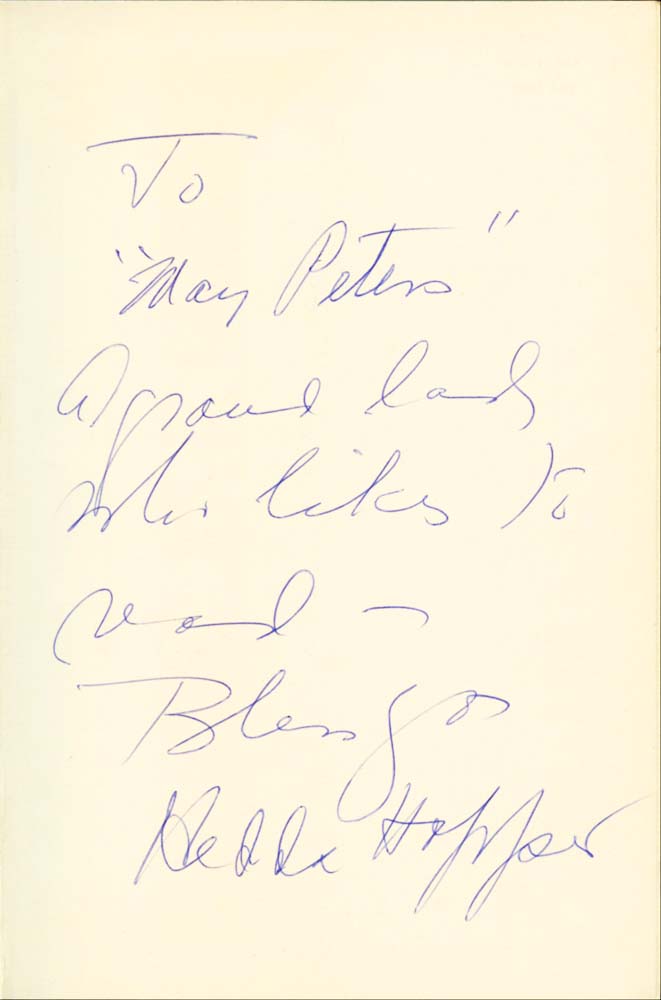 To
"May Peters"
A grand lady
who likes to
read —
Blessings
Hedda Hopper